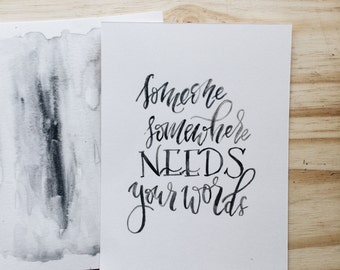 someone
somewhere
NEEDS
your words